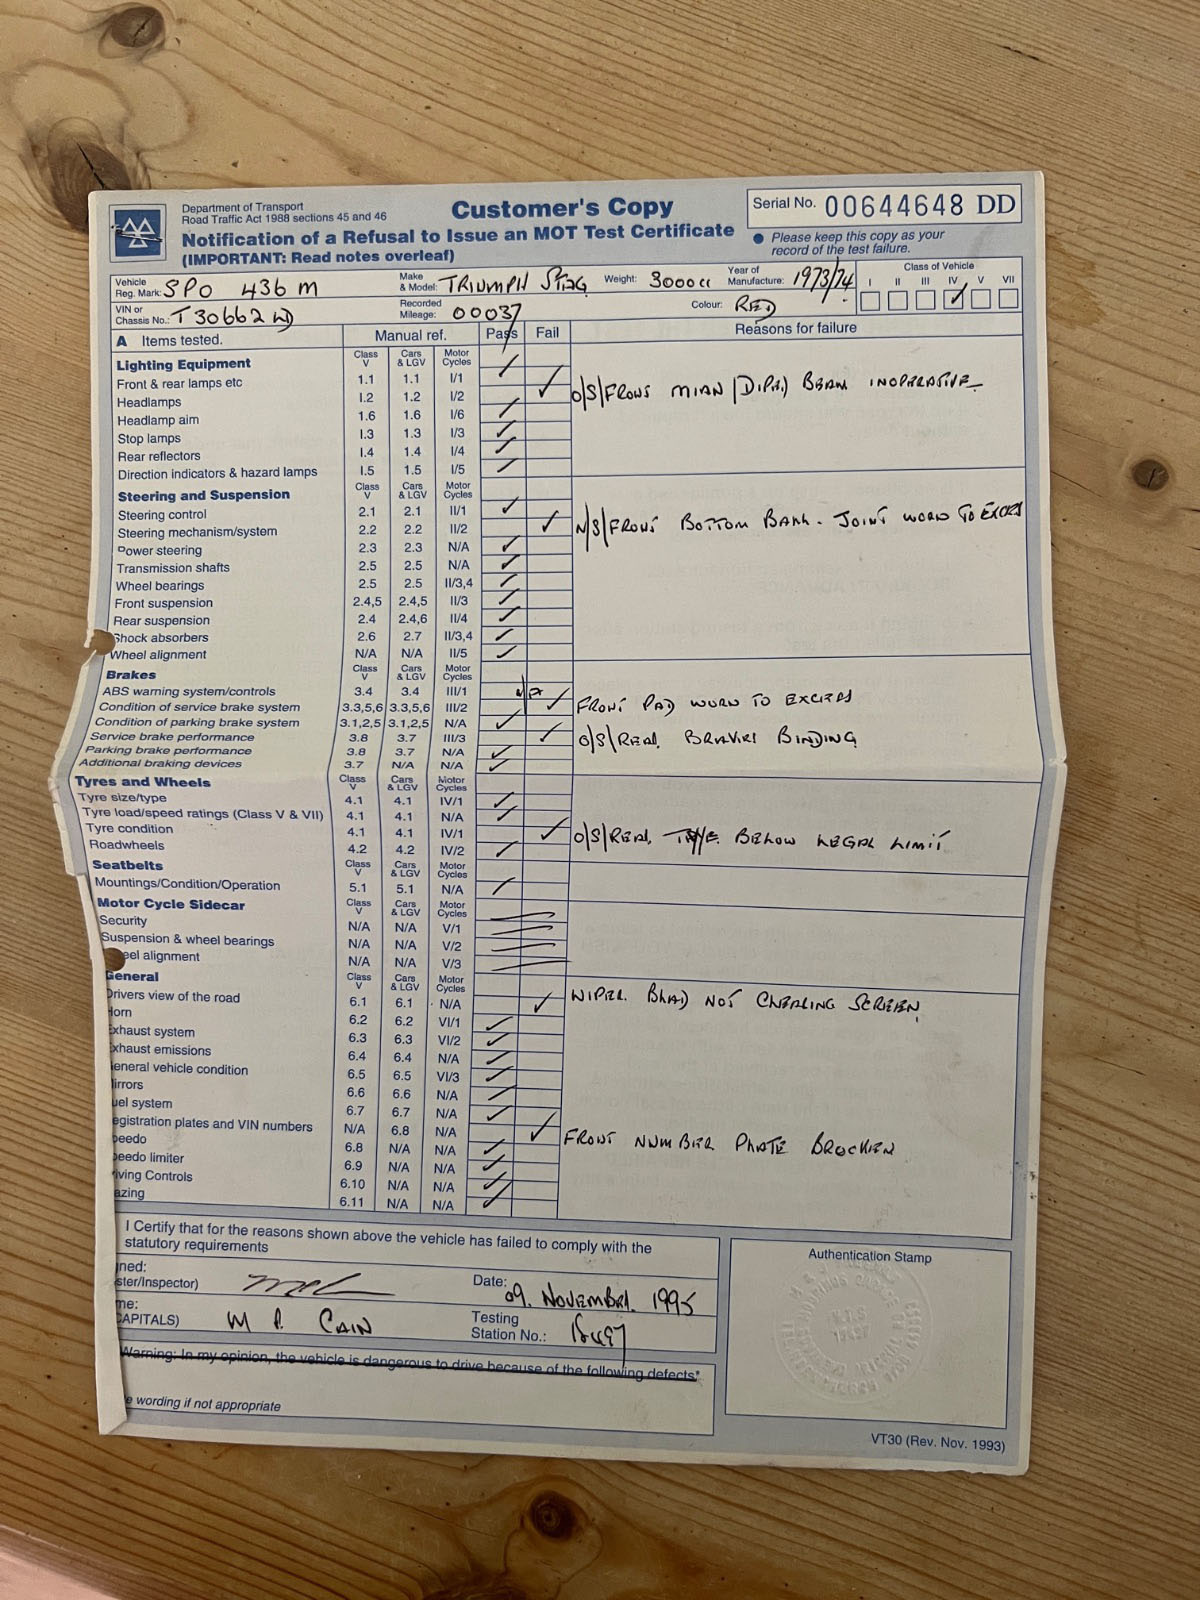 Department of Transport
Road Traffic Act 1988 sections 45 and 46
Customer's Copy
Serial No. 00644648 DD
Notification of a Refusal to Issue an MOT Test Certificate
(IMPORTANT: Read notes overleaf)
● Please keep this copy as your record of the test failure.
Vehicle Reg. Mark: SPO 436 M
Make & Model: TRIUMPH STAG
Weight: 3000cc
Year of Manufacture: 1973/74
Class of Vehicle
I II III IV V VII
VIN or Chassis No.: T30662
Recorded Mileage: 00037
Colour: RED
A Items tested. Manual ref. Pass Fail Reasons for failure
Lighting Equipment Class V Cars & LGV Motor Cycles
Front & rear lamps etc 1.1 1.1 I/1
Headlamps 1.2 1.2 I/2 O/S/FRONT MIAN (DIP.) BEAM INOPERATIVE
Headlamp aim 1.6 1.6 I/6
Stop lamps 1.3 1.3 I/3
Rear reflectors 1.4 1.4 I/4
Direction indicators & hazard lamps 1.5 1.5 I/5
Steering and Suspension Class V Cars & LGV Motor Cycles
Steering control 2.1 2.1 II/1
Steering mechanism/system 2.2 2.2 II/2 N/S/FRONT BOTTOM JOINT WORN TO EXCESS
Power steering 2.3 2.3 N/A
Transmission shafts 2.5 2.5 N/A
Wheel bearings 2.5 2.5 II/3,4
Front suspension 2.4,5 2.4,5 II/3
Rear suspension 2.4 2.4,6 II/4
Shock absorbers 2.6 2.7 II/3,4
Wheel alignment N/A N/A II/5
Brakes Class V Cars & LGV Motor Cycles
ABS warning system/controls 3.4 3.4 III/1
Condition of service brake system 3.3,5,6 3.3,5,6 III/2 FRONT PAD WORN TO EXCESS
Condition of parking brake system 3.1,2,5 3.1,2,5 N/A
Service brake performance 3.8 3.7 III/3 O/S/REAR BINDING
Parking brake performance 3.8 3.7 N/A
Additional braking devices 3.7 N/A N/A
Tyres and Wheels Class V Cars & LGV Motor Cycles
Tyre size/type 4.1 4.1 IV/1
Tyre load/speed ratings (Class V & VII) 4.1 4.1 N/A
Tyre condition 4.1 4.1 IV/1 O/S/REAR. TYRE BELOW LEGAL LIMIT
Roadwheels 4.2 4.2 IV/2
Seatbelts Class V Cars & LGV Motor Cycles
Mountings/Condition/Operation 5.1 5.1 N/A
Motor Cycle Sidecar Class V Cars & LGV Motor Cycles
Security N/A N/A V/1
Suspension & wheel bearings N/A N/A V/2
eel alignment N/A N/A V/3
General Class V Cars & LGV Motor Cycles
Drivers view of the road 6.1 6.1 N/A WIPER BLAD NOT CLEARING SCREEN
orn 6.2 6.2 VI/1
xhaust system 6.3 6.3 VI/2
xhaust emissions 6.4 6.4 N/A
eneral vehicle condition 6.5 6.5 VI/3
irrors 6.6 6.6 N/A
uel system 6.7 6.7 N/A
egistration plates and VIN numbers N/A 6.8 N/A FRONT NUMBER PLATE BROCKEN
peedo 6.8 N/A N/A
peedo limiter 6.9 N/A N/A
iving Controls 6.10 N/A N/A
azing 6.11 N/A N/A
I Certify that for the reasons shown above the vehicle has failed to comply with the
statutory requirements
Authentication Stamp
gned:
ster/Inspector)
Date: 09. NOVEMBER. 1995
me:
CAPITALS) M P. CAIN
Testing Station No.:
Warning: In my opinion, the vehicle is dangerous to drive because of the following defects*
e wording if not appropriate
VT30 (Rev. Nov. 1993)